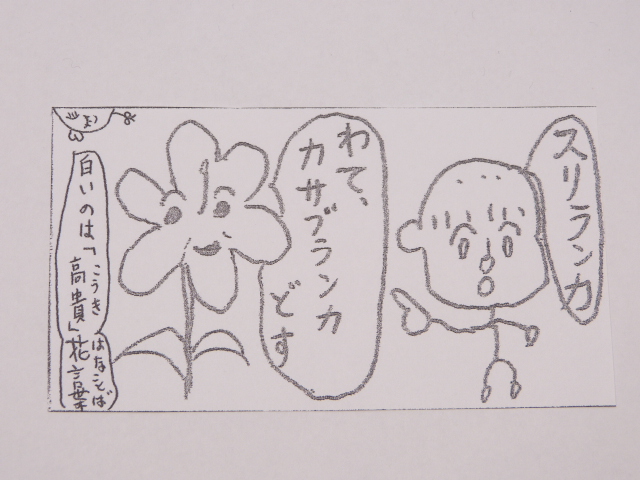 スリランカ
わて、
カサブランカ
どす
白いのは「高貴」花言葉
こうき はなことば